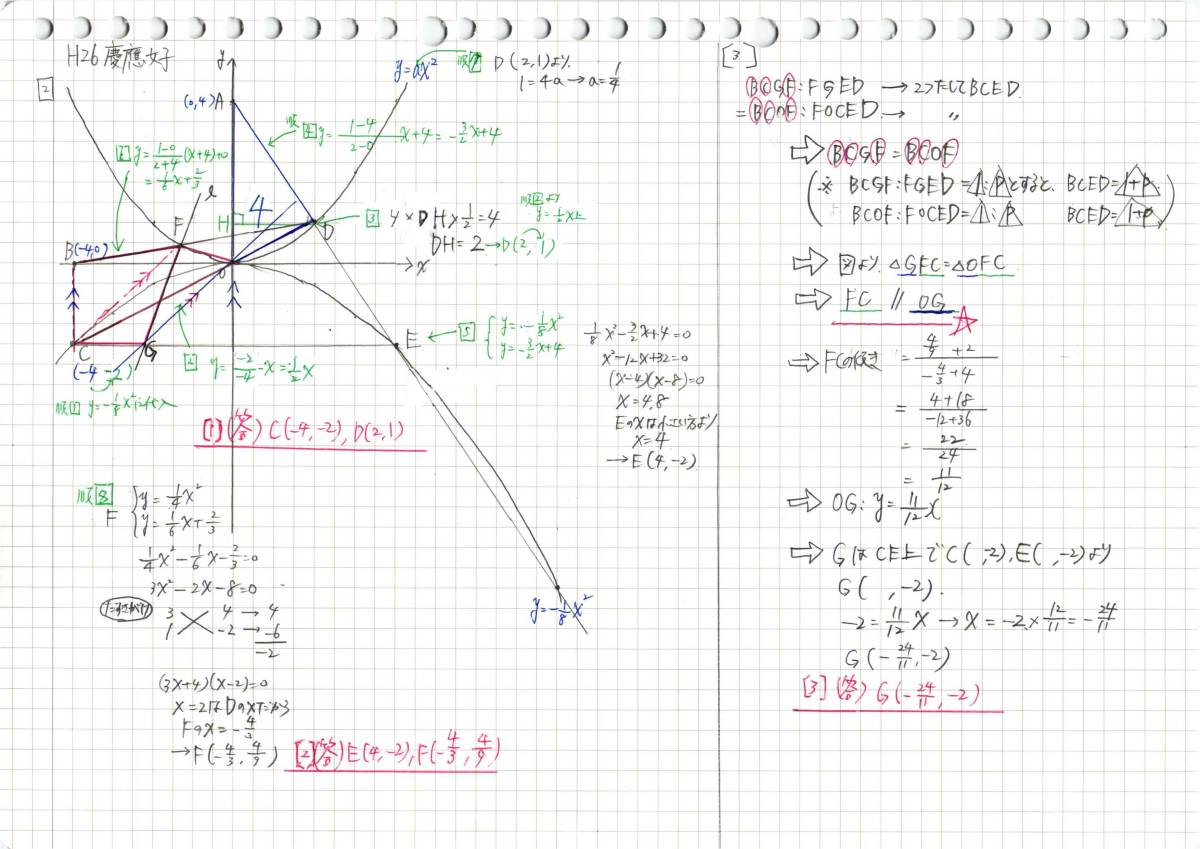 H26 慶應女子
[2]
y
y=ax²
順[7] D(2,1)より
1=4a→a=1/4
(0,4)A
順[4] y=(1-4)/(2-0)x+4=-3/2x+4
[6] y=(1-0)/(2+4)(x+4)+0
=1/6x+2/3
l
F
H
4
D
[3] 4×DH×1/2=4
DH=2→D(2,1)
順[2]より
y=1/2x上
B(-4,0)
O
x
C
G
E
(-4,-2)
[2] y=-2/-4・x=1/2x
順[1] y=-1/8x²に代入
[5] { y=-1/8x²
y=-3/2x+4
1/8x²-3/2x+4=0
x²-12x+32=0
(x-4)(x-8)=0
x=4,8
Eのxは小さい方より
x=4
→E(4,-2)
[1](答) C(-4,-2), D(2,1)
順[8]
F { y=1/4x²
y=1/6x+2/3
1/4x²-1/6x-2/3=0
3x²-2x-8=0
たすきがけ
3 4→4
1 -2→-6
-2
(3x+4)(x-2)=0
x=2はDのxだから
Fのx=-4/3
→F(-4/3,4/9)
[2](答)E(4,-2),F(-4/3,4/9)
y=-1/8x²
[3]
BCGF:FGED →2つたしてBCED.
=BCOF:FOCED.→ 〃
⇨BCGF=BCOF
(※ BCGF:FGED=1:Pとすると、BCED=1+P.
BCOF:FOCED=1:P BCED=1+P)
⇨図より △GFC=△OFC
⇨ FC // OG ☆
⇨FCの傾き=(4/9+2)/(-4/3+4)
=(4+18)/(-12+36)
=22/24
=11/12
⇨OG: y=11/12x
⇨ GはCE上でC( ,-2),E( ,-2)より
G( ,-2).
-2=11/12x→x=-2×12/11=-24/11
G(-24/11,-2)
[3](答) G(-24/11,-2)